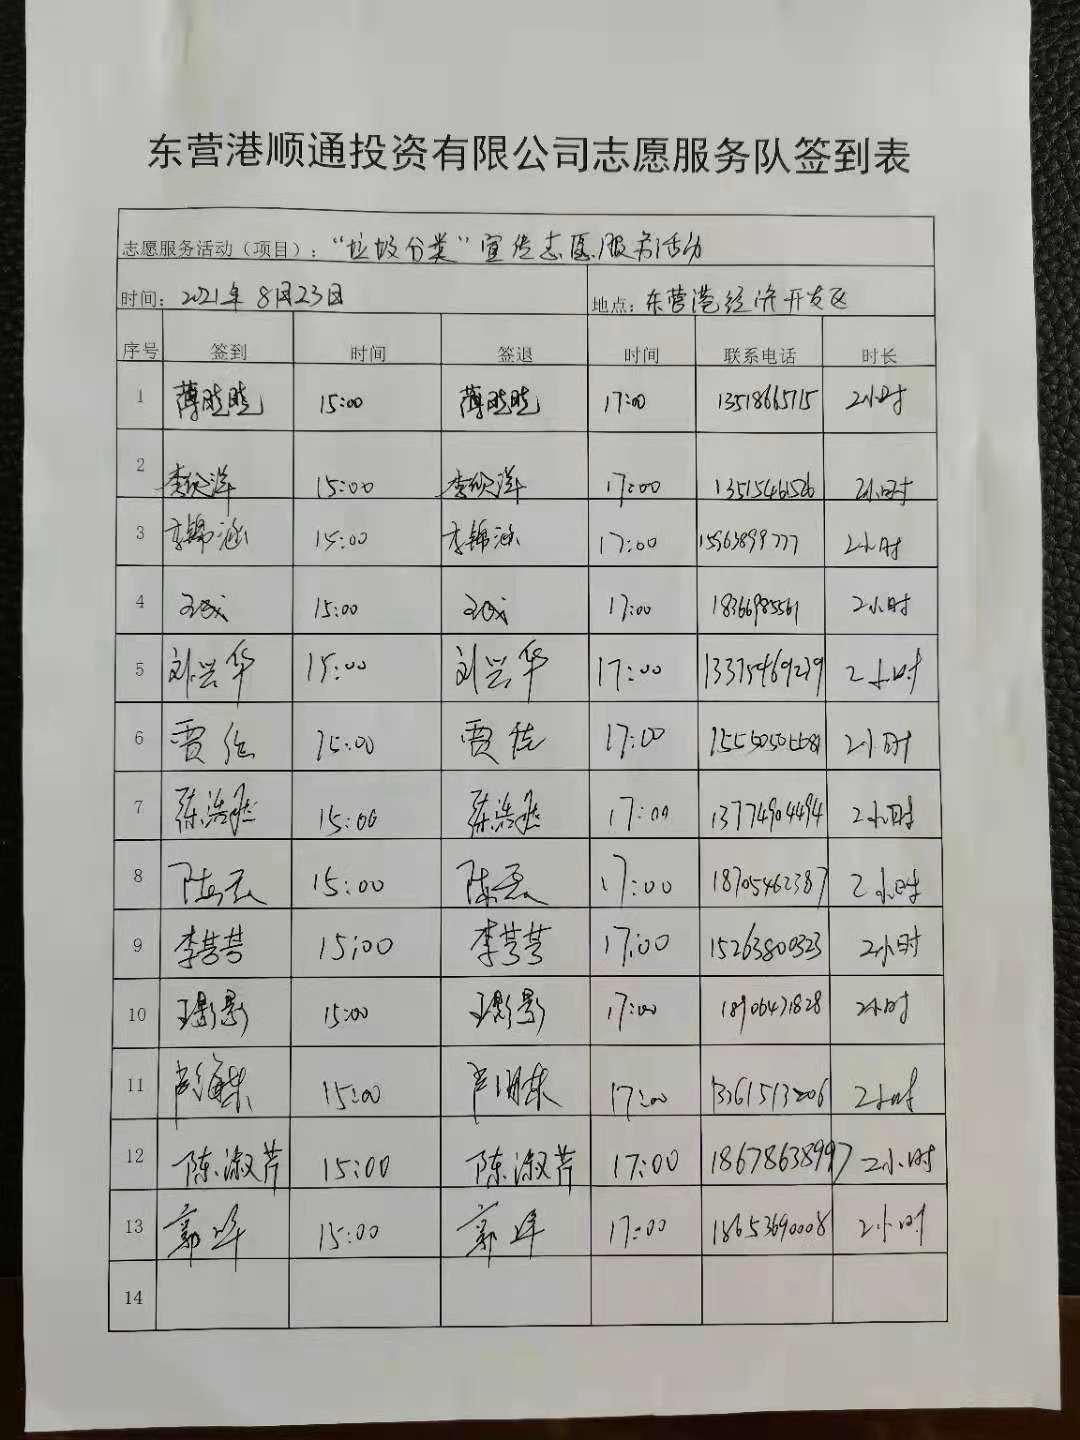 东营港顺通投资有限公司志愿服务队签到表
志愿服务活动（项目）："垃圾分类"宣传志愿服务活动
时间：2021年8月23日 地点：东营港经济开发区
序号 签到 时间 签退 时间 联系电话 时长
1 薄晓晓 15:00 薄晓晓 17:00 13518665715 2小时
2 李欣洋 15:00 李欣洋 17:00 13515461526 2小时
3 李锦涵 15:00 李锦涵 17:00 15963899777 2小时
4 15:00 17:00 18366985561 2小时
5 刘兴华 15:00 刘兴华 17:00 13375469239 2小时
6 贾佳 15:00 贾佳 17:00 2小时
7 陈浩然 15:00 陈浩然 17:00 13774904494 2小时
8 陈磊 15:00 陈磊 17:00 18705462387 2小时
9 李芸芸 15:00 李芸芸 17:00 15263800323 2小时
10 王影影 15:00 王影影 17:00 18906471828 2小时
11 15:00 17:00 2小时
12 陈淑芹 15:00 陈淑芹 17:00 18678638997 2小时
13 郭峰 15:00 郭峰 17:00 18653690008 2小时
14